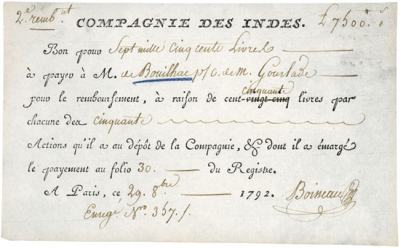 2e. rembt.
COMPAGNIE DES INDES. £7500.
Bon pour Sept mille Cinq cents Livres
à payer à M. de Bouilhac p/C. de M. Gourlade
cinquante
pour le remboursement, à raison de cent vingt-cinq livres par
chacune des cinquante
Actions qu'il a au dépôt de la Compagnie, & dont il a émargé
le payement au folio 30. du Registre.
A Paris, ce 29. 8bre 1792. Boineau
Enregé No. 357./.